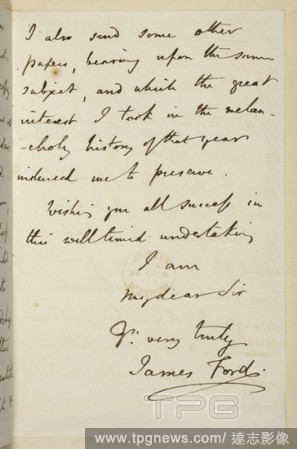 I also send some other
papers, bearing upon the same
subject, and which the great
interest I took in the melan-
-choly history of that year
induced me to preserve.
Wishing you all success in
this well timed undertaking
I am
My dear Sir
Yr. very truly
James Ford
TPG
www.tpgnews.com/達志影像